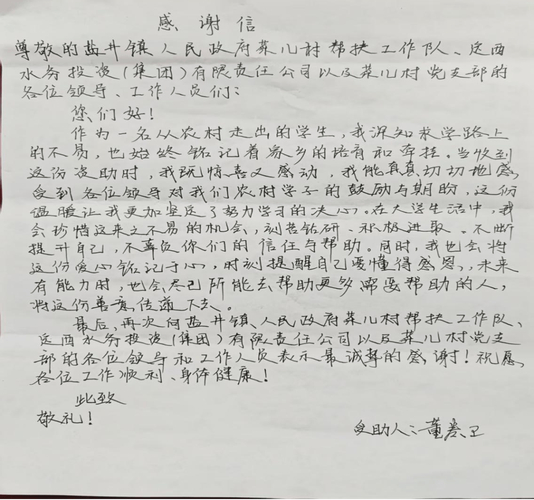 感谢信
尊敬的盐井镇人民政府菜儿村帮扶工作队、定西
水务投资(集团)有限责任公司以及菜儿村党支部的
各位领导、工作人员们:
您们好!
作为一名从农村走出的学生,我深知求学路上
的不易,也始终铭记着家乡的培育和牵挂。当收到
这份资助时,我既惊喜又感动,我能真真切切地感
受到各位领导对我们农村学子的鼓励与期盼,这份
温暖让我更加坚定了努力学习的决心。在大学生活中,我
会珍惜这来之不易的机会,刻苦钻研、积极进取。不断
提升自己,不辜负你们的信任与帮助。同时,我也会将
这份爱心铭记于心,时刻提醒自己要懂得感恩,未来
有能力时,也会尽己所能去帮助更多需要帮助的人,
将这份善意传递下去。
最后,再次向盐井镇人民政府菜儿村帮扶工作队、
定西水务投资(集团)有限责任公司以及菜儿村党支
部的各位领导和工作人员表示最诚挚的感谢!祝愿
各位工作顺利、身体健康!
此致
敬礼!
受助人:董 卫